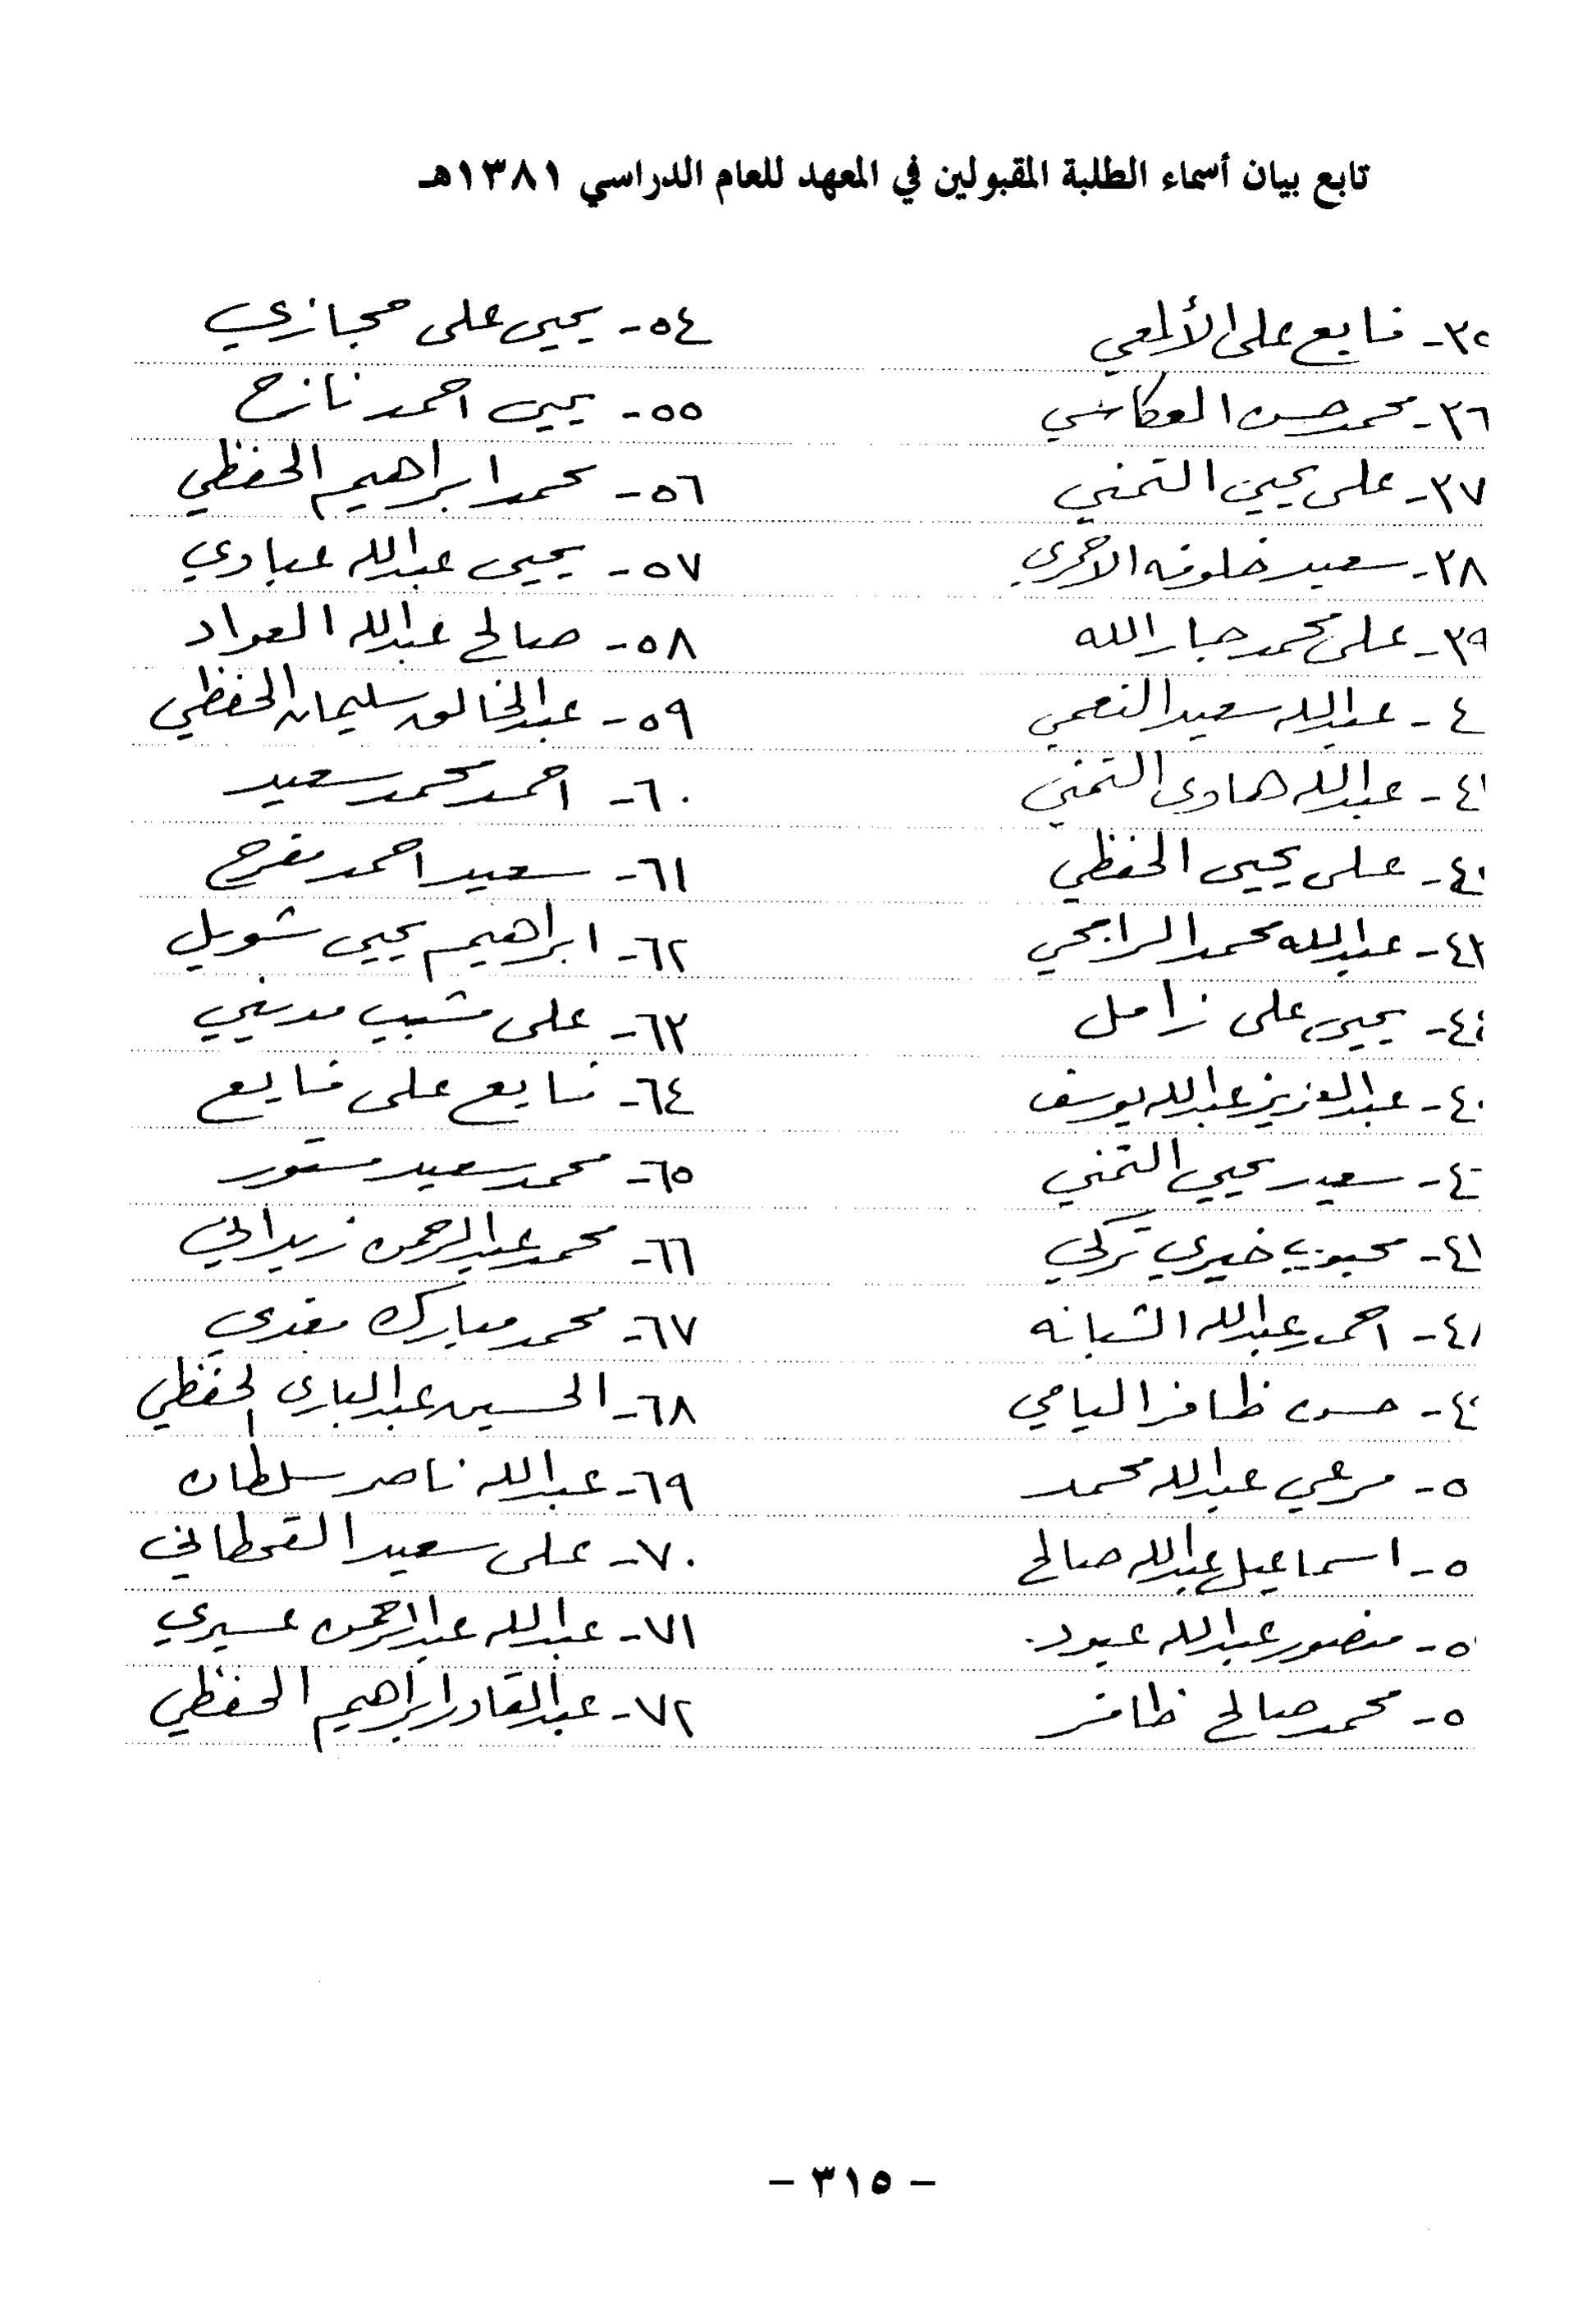 تابع بيان أسماء الطلبة المقبولين في المعهد للعام الدراسي ١٣٨١هـ
٣٥- فايع على الألمعي
٣٦- محمد حسن العكاسي
٣٧- على يحيى التمني
٣٨- سعيد خلوفه الاحمري
٣٩- على محمد جار الله
٤- عبدالله سعيد النعمي
٤١- عبدالله هادى التمني
٤- على يحيى الحفظي
٤٣- عبدالله محمد الرابحي
٤٤- يحيى على زامل
٤- عبدالعزيز عبدالله يوسف
٤- سعيد يحيى التمني
٤- محبوب خيري تركي
٤- احمد عبدالله الشبانه
٤- حسن ظافر اليامي
٥- مرعي عبدالله محمد
٥- اسماعيل عبدالله صالح
٥- منصور عبدالله عبود.
٥- محمد صالح ظافر
٥٤- يحيى على حجازي
٥٥- يحيى احمد نازح
٥٦- محمد ابراهيم الحفظي
٥٧- يحيى عبدالله عبادي
٥٨- صالح عبدالله العواد
٥٩- عبدالخالق سليمان الحفظي
٦٠- احمد محمد سعيد
٦١- سعيد احمد مفرح
٦٢- ابراهيم يحيى شويل
٦٣- على مشبب مديني
٦٤- فايع على فايع
٦٥- محمد سعيد مستور
٦٦- محمد عبدالرحمن زيداني
٦٧- محمد مبارك مفدي
٦٨- الحسين عبدالبارى الحفظي
٦٩- عبدالله ناصر سلطان
٧٠- على سعيد القحطاني
٧١- عبدالله عبدالرحمن عسيري
٧٢- عبدالقادر ابراهيم الحفظي
- ٣١٥ -